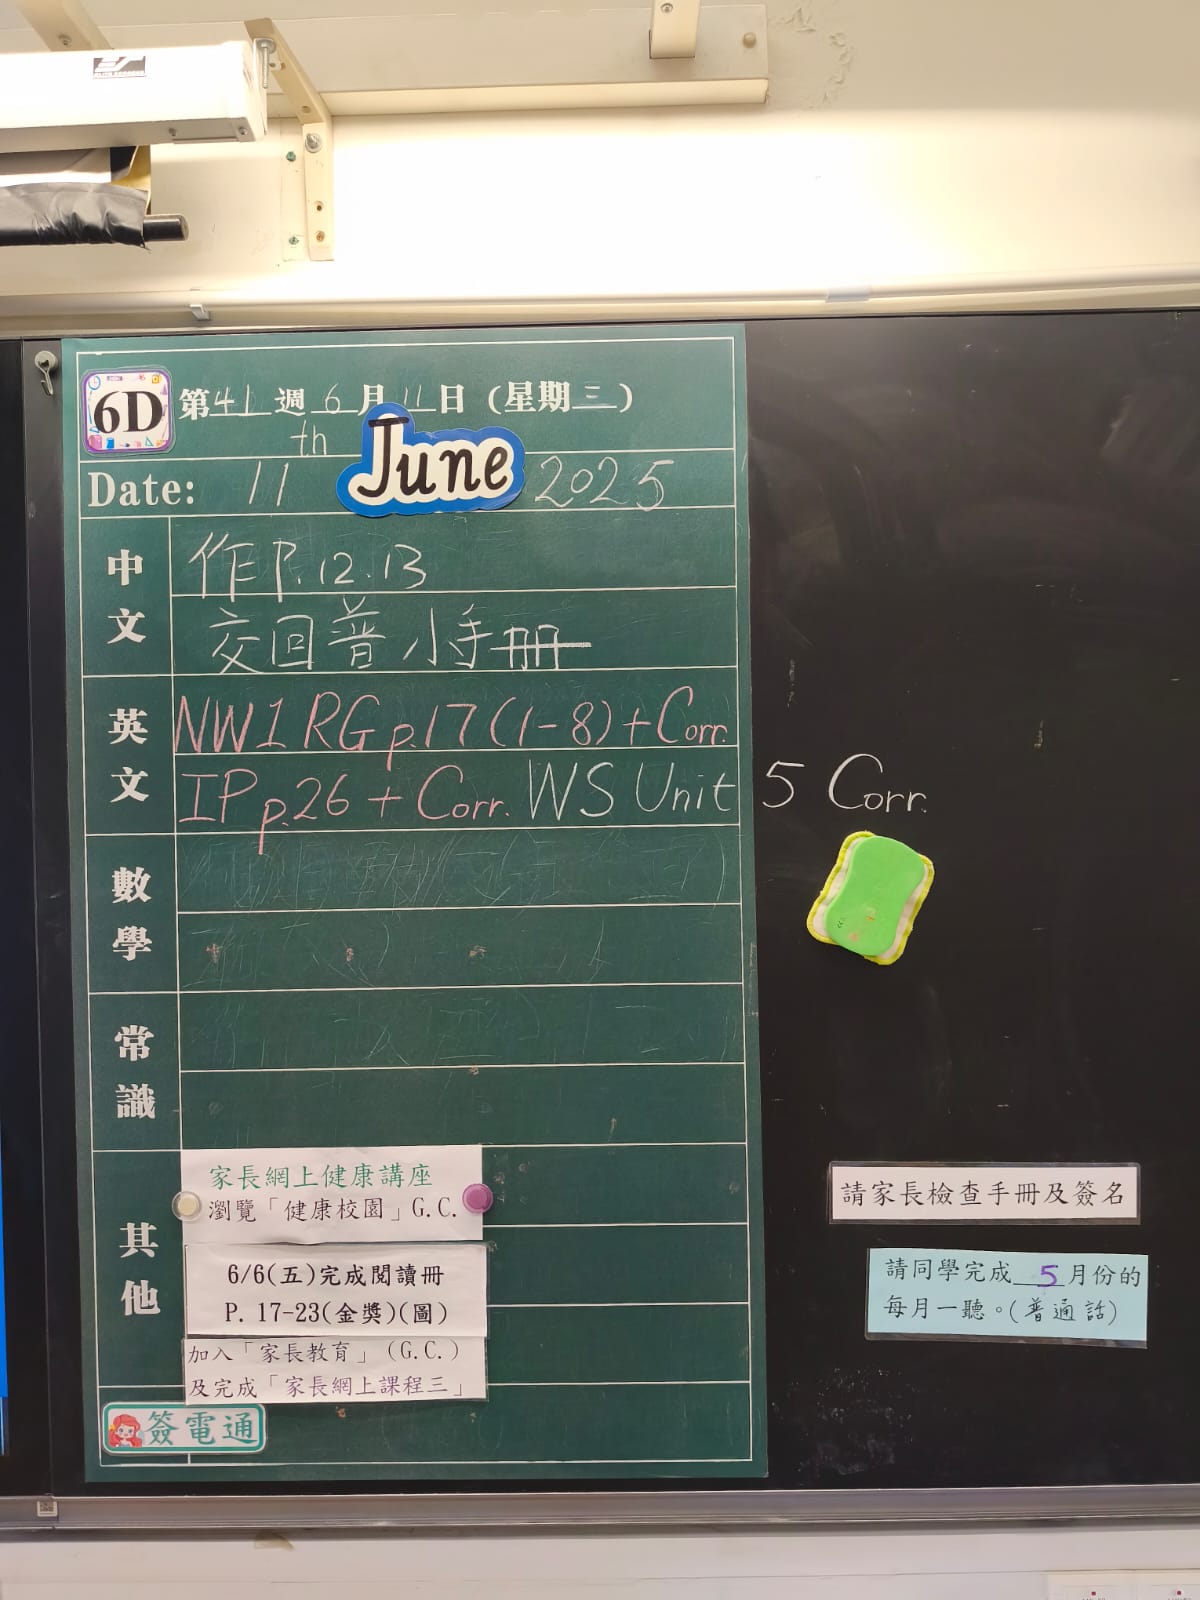 6D 第41週 6月11日(星期三)
Date: 11th June 2025
中文
作P.12.13
交回普小手冊
英文
NW1 RG p.17(1-8)+Corr.
IP p.26 + Corr. WS Unit 5 Corr.
數學
常識
其他
家長網上健康講座
瀏覽「健康校園」G.C.
6/6(五)完成閱讀冊
P. 17-23(金獎)(圖)
加入「家長教育」(G.C.)
及完成「家長網上課程三」
簽電通
請家長檢查手冊及簽名
請同學完成 5 月份的
每月一聽。(普通話)